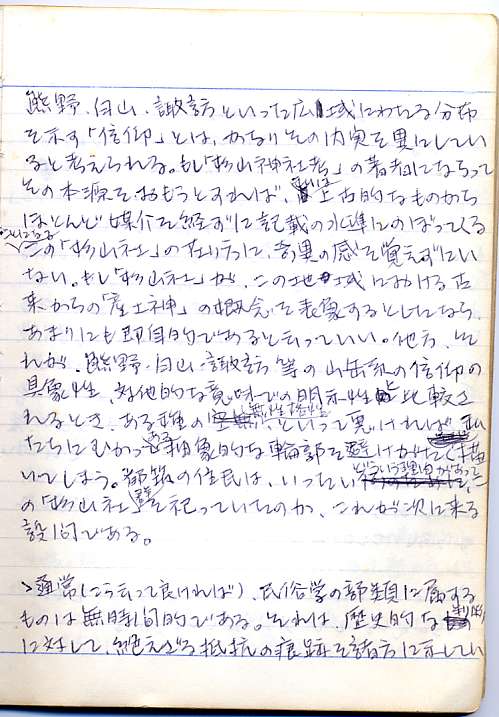 熊野・白山・諏訪といった広域にわたる分布
を示す「信仰」とは、かなりその内実を異にしてい
ると考えられる。もし「杉山神社考」の著者にならって
その本源をおもうとすれば、あるいは上古的なものから
ほとんど媒介を経ずに記載の水準にのぼってくる
この「杉山社」の在り方に、奇異の感を覚えずにい
ない。もし「杉山社」が、この地域における古
来からの「産土神」の概念を表象するとしたなら、
あまりにも即自的であると言っていい。他方、そ
れが、熊野・白山・諏訪等の山岳系の信仰の
具象性、対他的な意味での明示性と比較さ
れるとき、ある種の無性格性といって良ければ私
たちにむかって抽象的な輪郭を避けがたく描
いてしまう。都筑の住民は、いったいどういう理由があって、こ
の「杉山社」を祀っていたのか、これが次に来る
設問である。
>通常(こう言って良ければ)、民俗学の部類に属する
ものは無時間的である。それは、歴史的な
に対して、絶えざる抵抗の痕跡を諸方に示してい